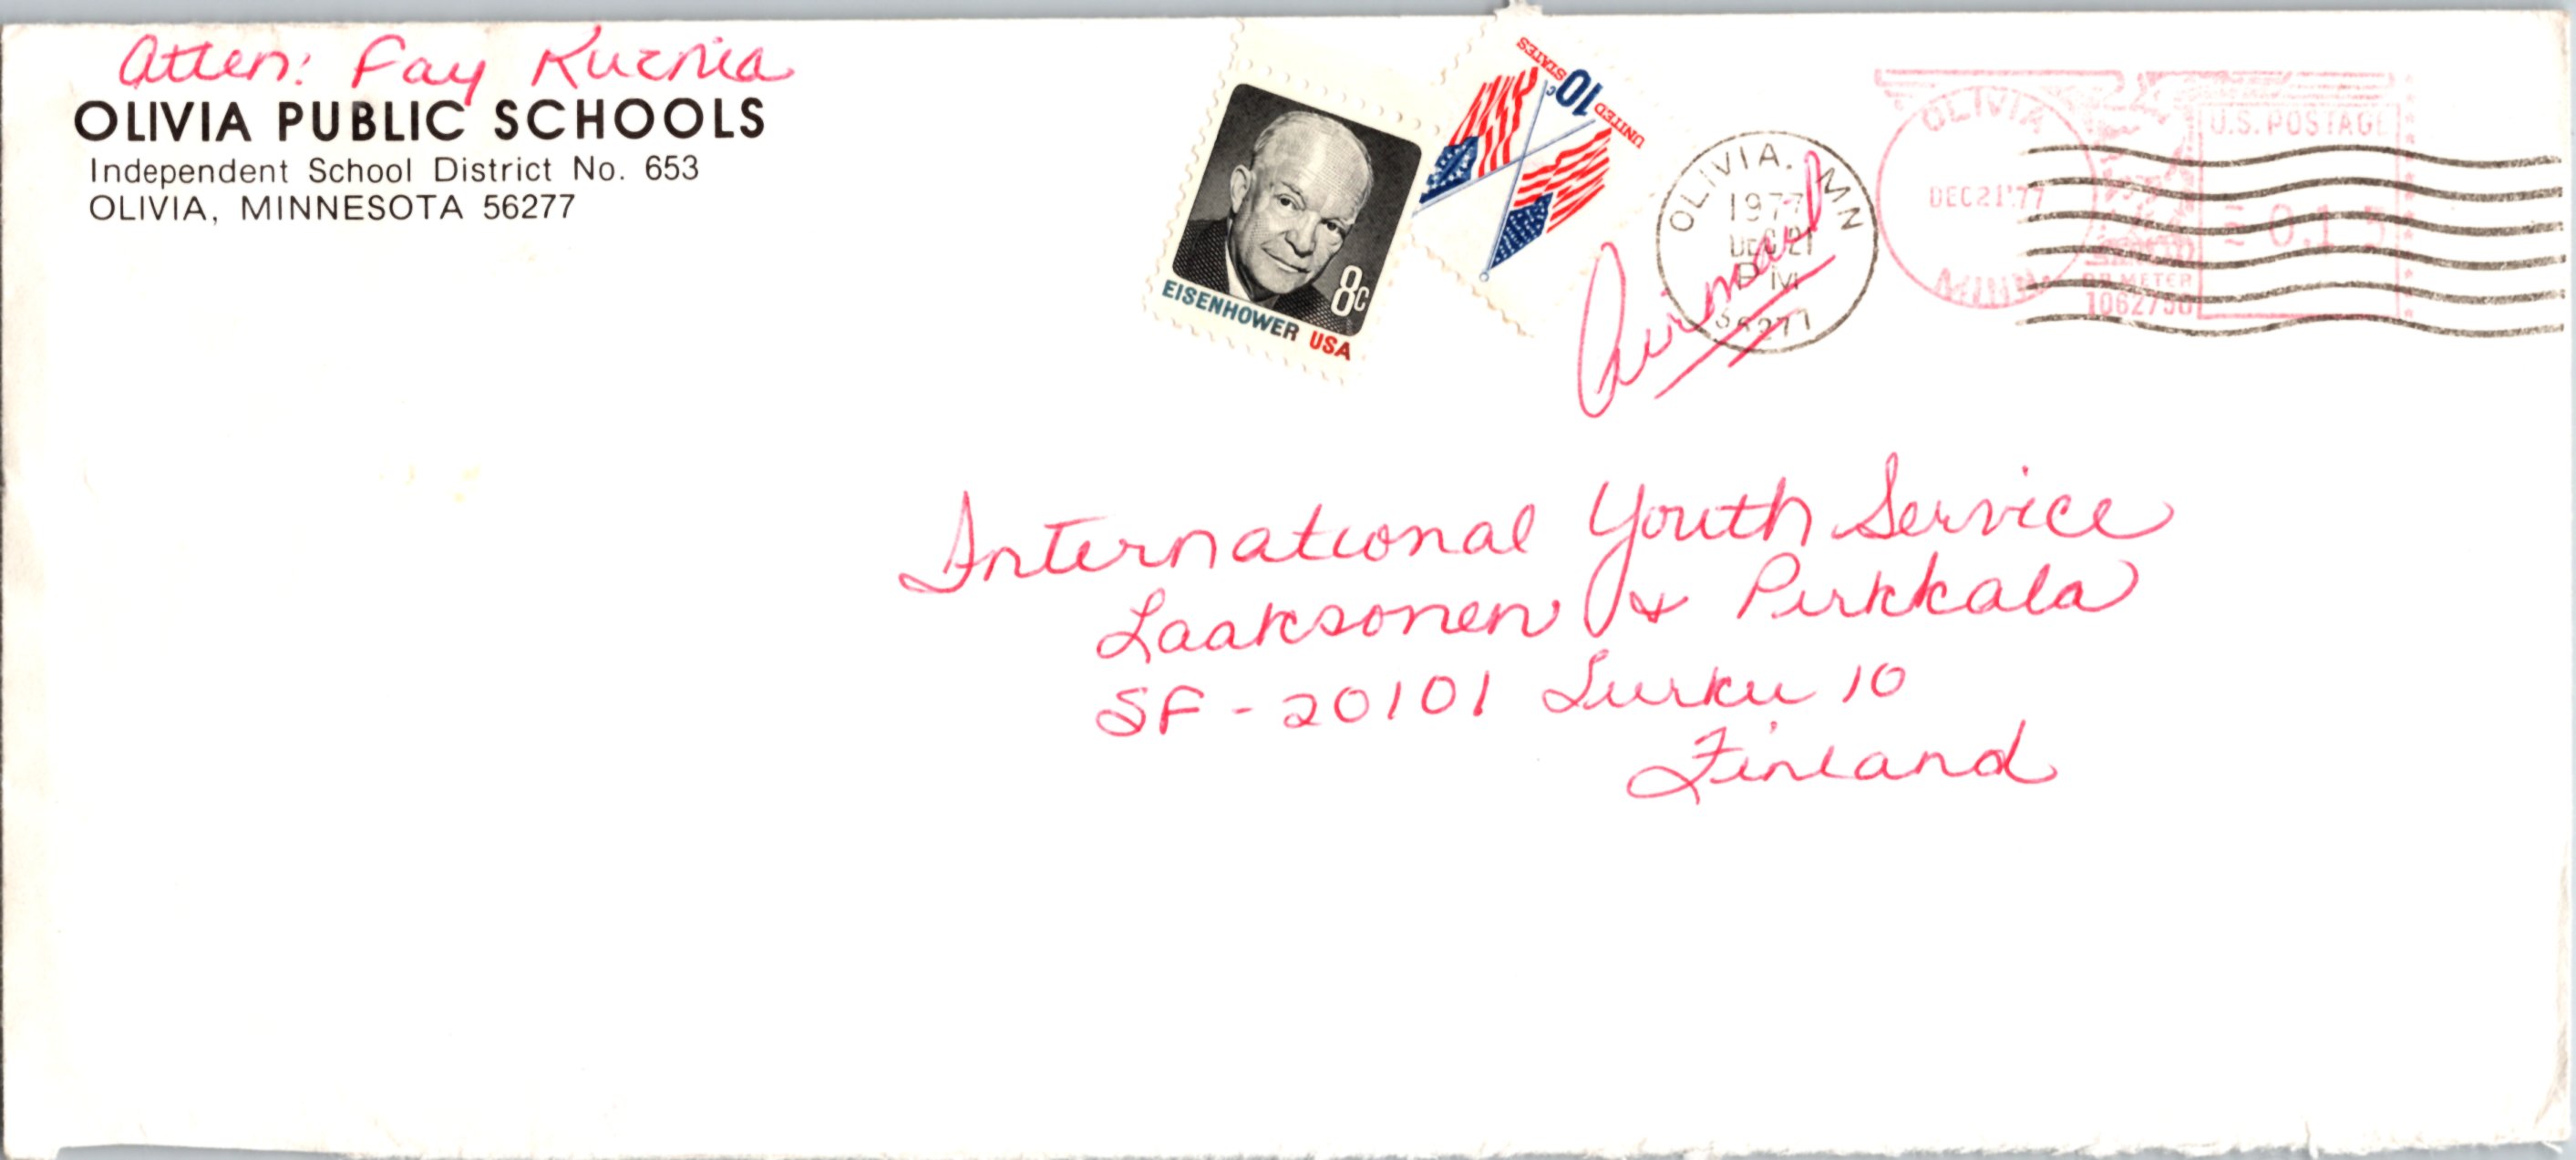 Atten: Fay Kuznia
OLIVIA PUBLIC SCHOOLS
Independent School District No. 653
OLIVIA, MINNESOTA 56277
8c
EISENHOWER USA
UNITED STATES
10c
OLIVIA, MN
1977
DEC 21
PM
56277
Airmail
OLIVIA
DEC 21 '77
MINN.
U.S. POSTAGE
0.15
PB METER
International Youth Service
Laaksonen & Pirkkala
SF-20101 Turku 10
Finland